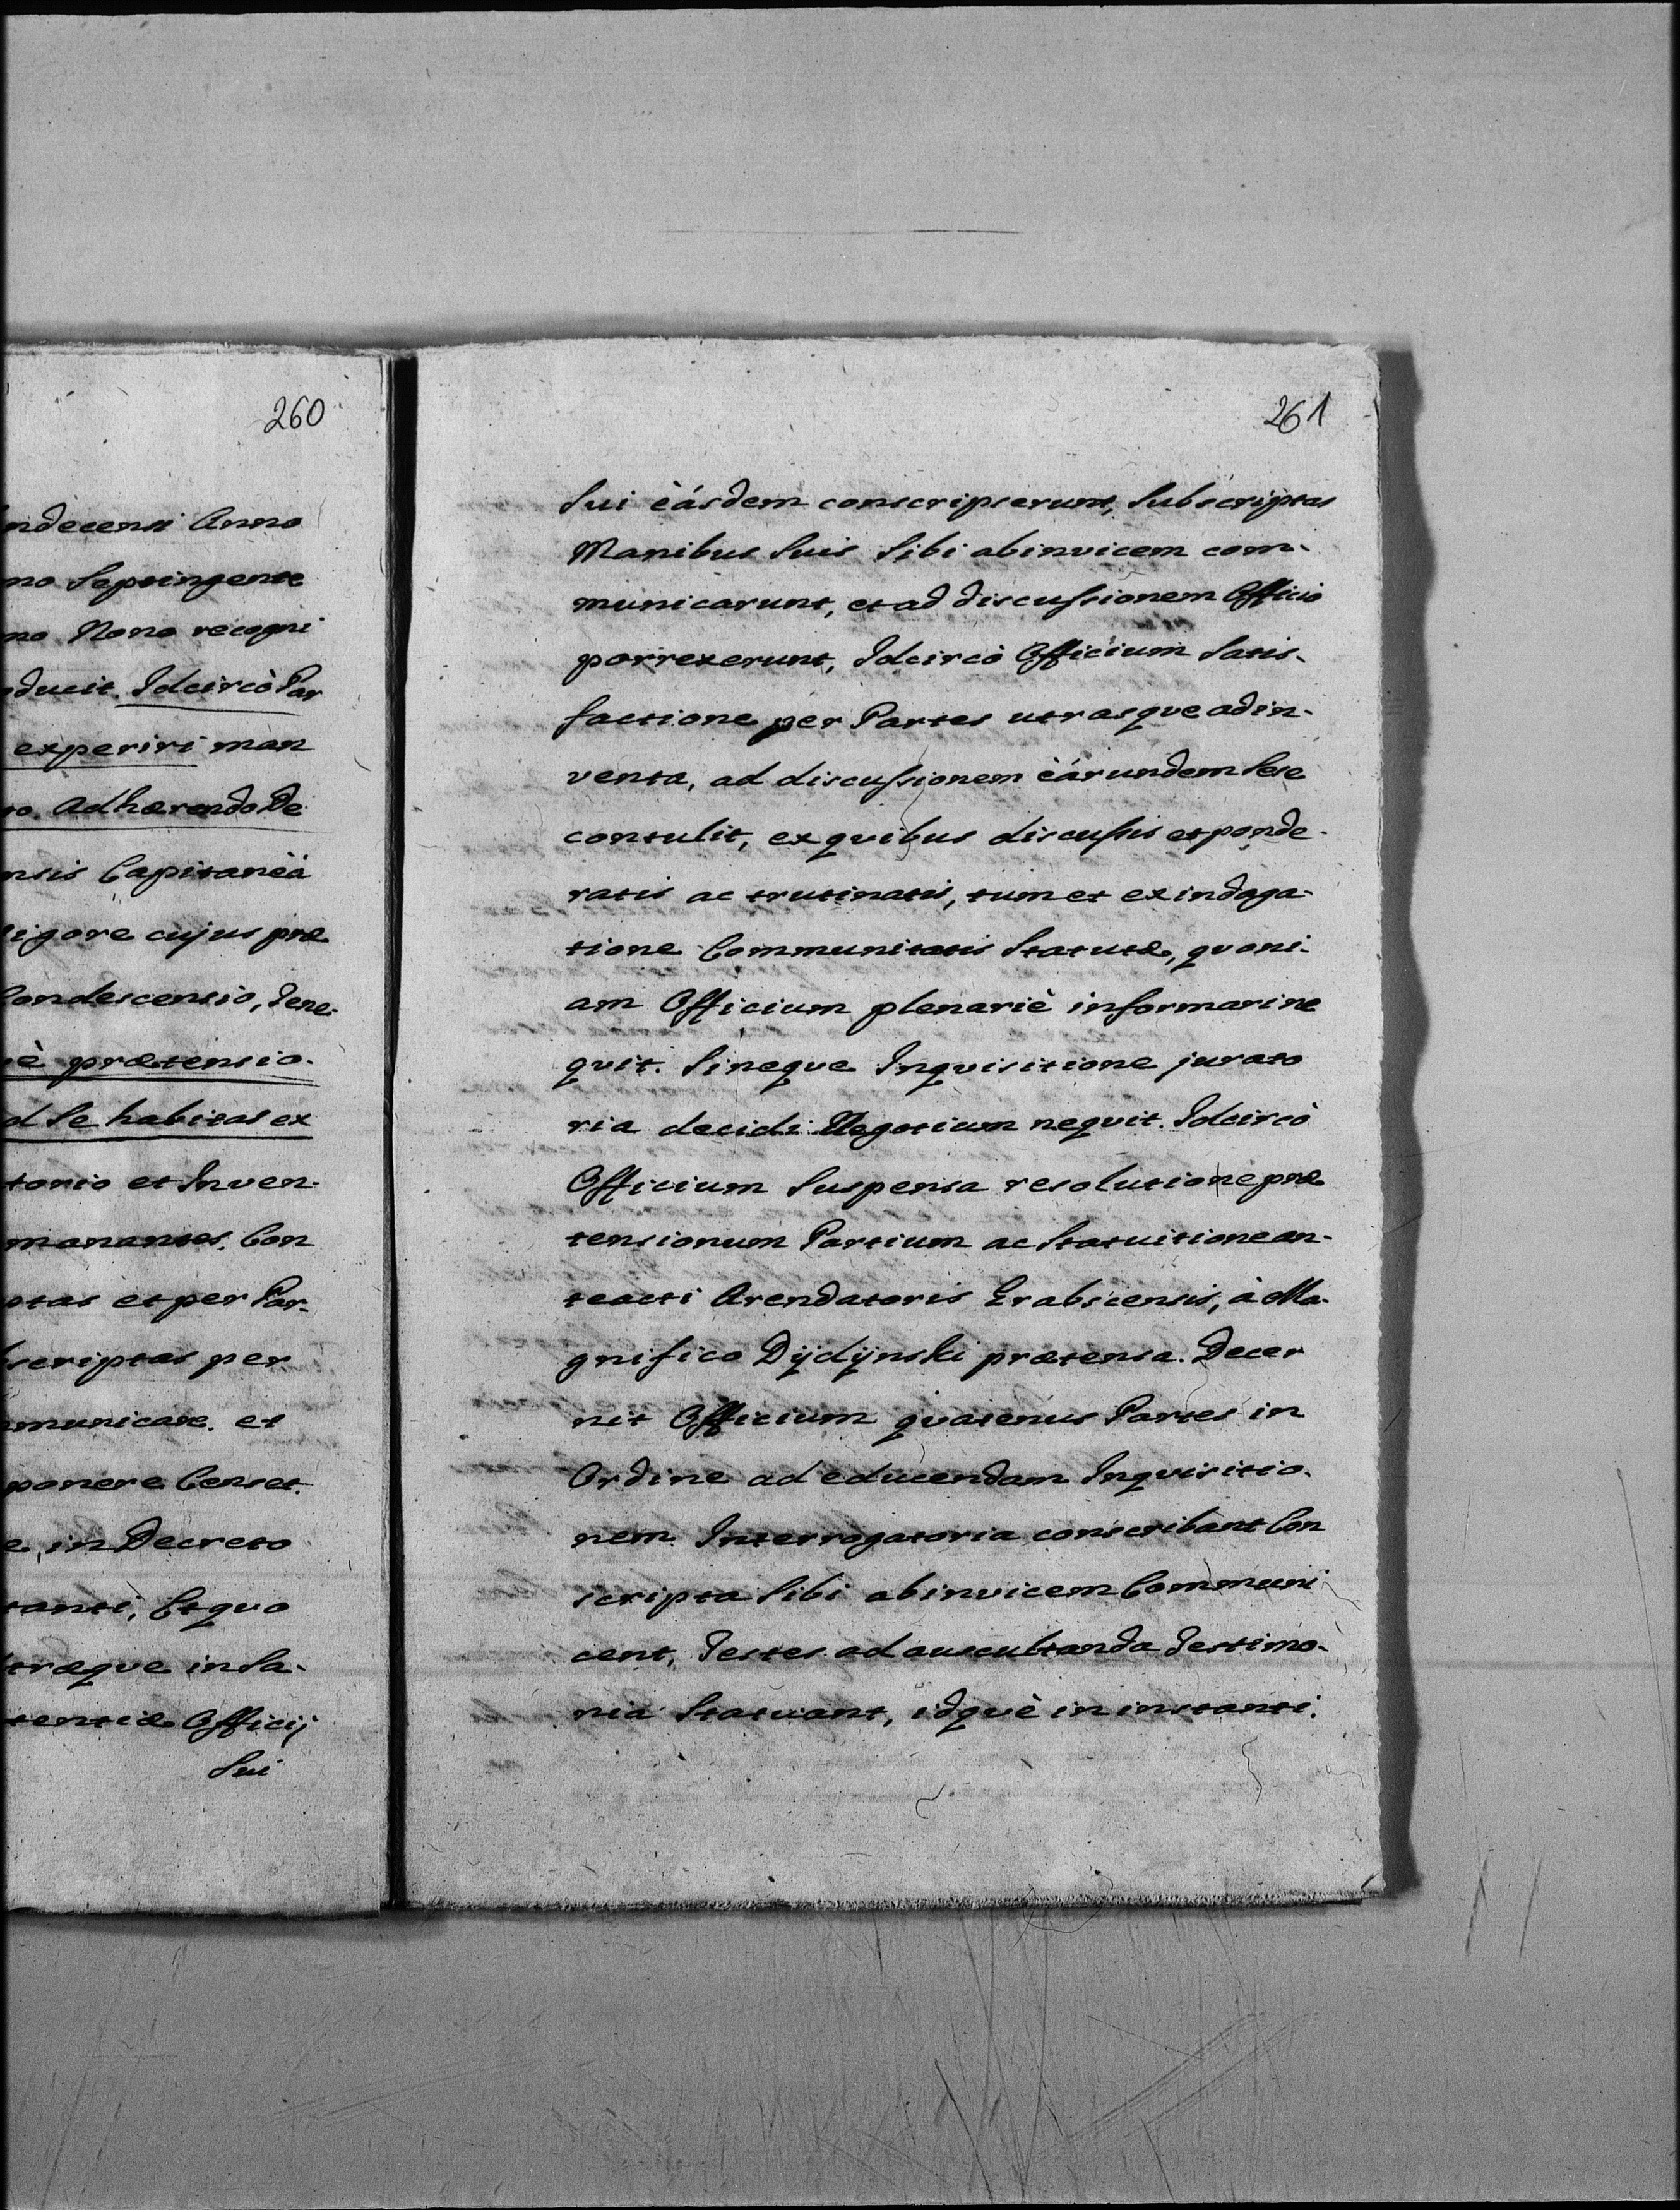 260
ndecensi Anno
no Septingente
no Nono recogni
ducit. Idcircò Par
experiri man
to. Adhærendo De
nsis Capitaneà
igore cujus præ
Condescensio, Tene-
è prætensio-
d Se habitas ex
torio et Inven-
manantes. Con
ptas et per Par-
scriptas per
municare. et
ponere Censet.
e, in Decreto
tanti, Et quo
træque in Sa-
tentiæ Officij
Sui
261
Sui èásdem conscripserunt, Subscriptas
Manibus Suis Sibi abinvicem com-
municarunt, et ad discussionem Officio
porrexerunt, Idcircò Officium Satis-
factione per Partes utrasque adin-
venta, ad discussionem èárundem Sese
contulit, ex quibus discussis et ponde-
ratis ac trutinatis, tum et ex indaga-
tione Communitatis Statutæ, quoni-
am Officium plenariè informari ne
quit. Sineque Inquisitione jurato
ria decidi Negotium nequit. Idcircò
Officium Suspensa resolutione præ
tensionum Partium ac Statuitione an-
teacti Arendatoris Grabscensis, à Ma-
gnifico Dÿdÿnski prætensa. Decer
nit Officium quatenus Partes in
Ordine ad educendam Inquisitio-
nem Interrogatoria conscribant Con
scripta Sibi abinvicem Communi
cent, Testes ad auscultanda Testimo-
nia Statuant, idquè in instanti.